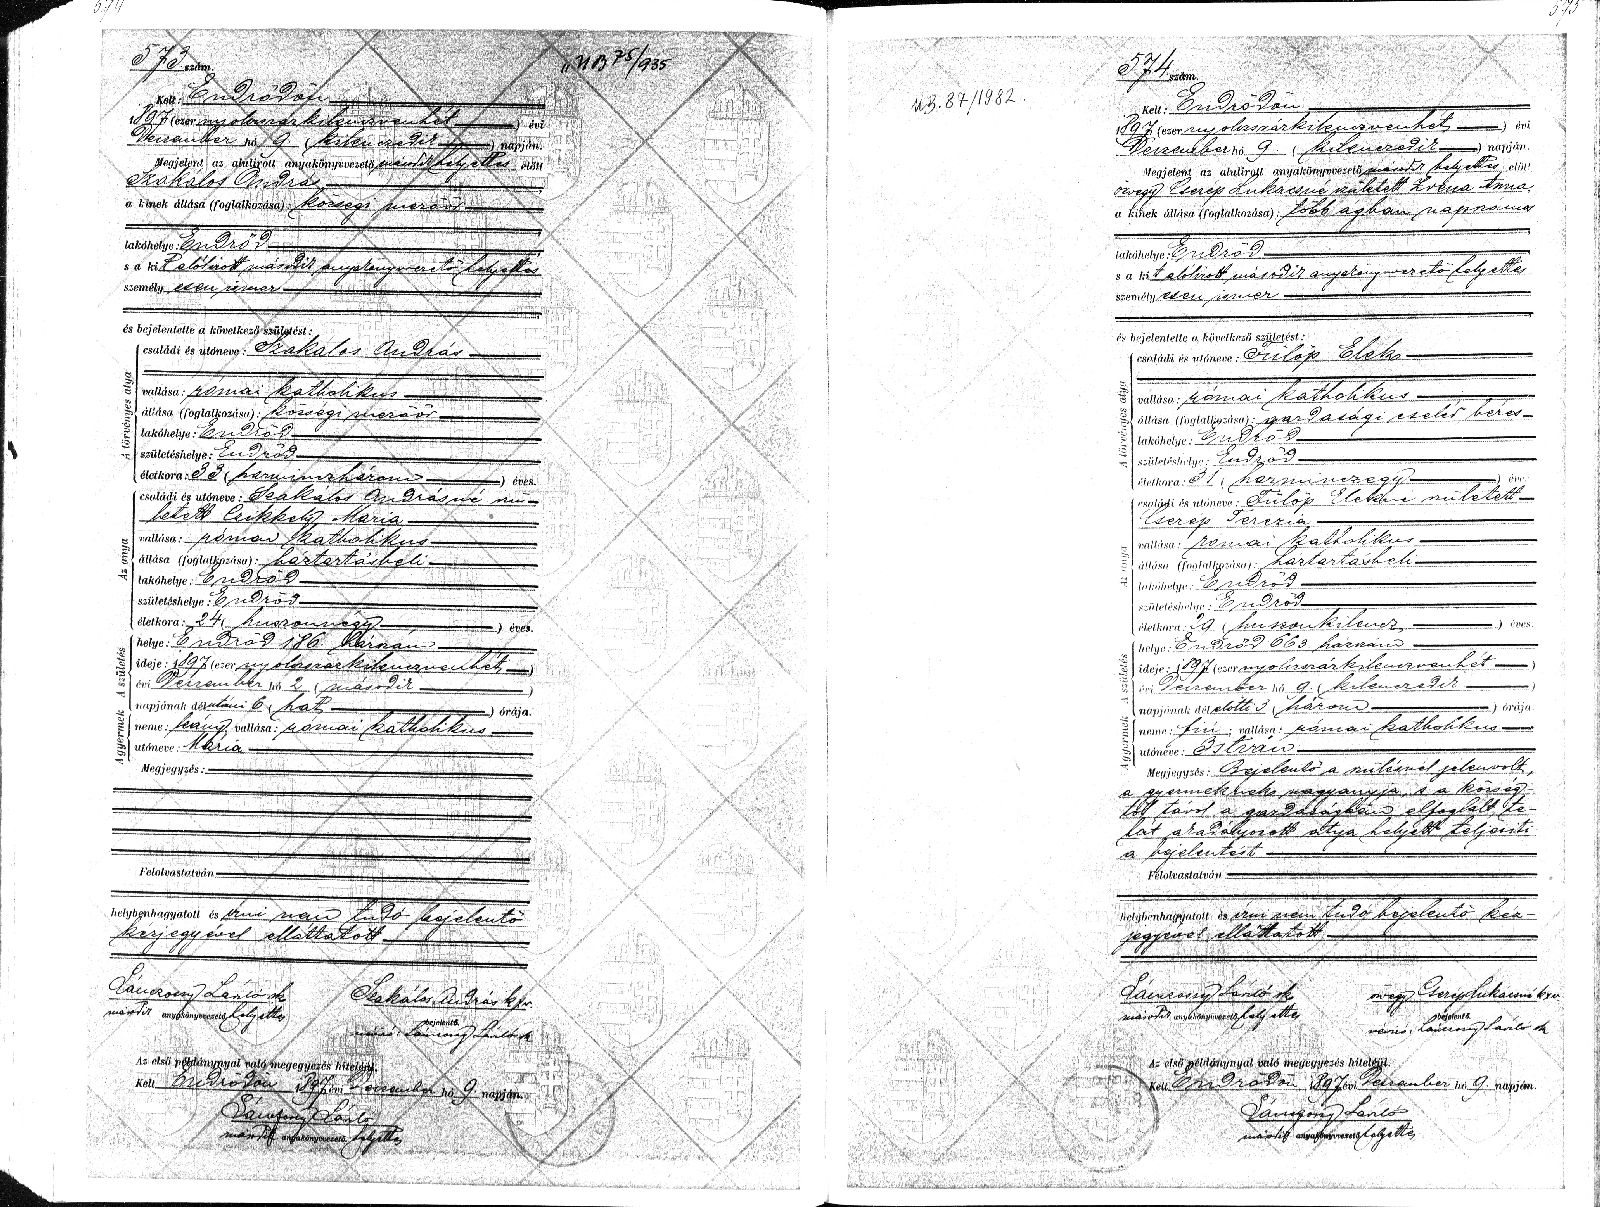 574
573 szám.
"UB 75/935
Kelt: Endrődön
1897 (ezer nyolczszázkilenczvenhét) évi
Deczember hó 9. (kilenczedik) napján.
Megjelent az alulirott anyakönyvvezető másodir helyettes előtt
Szakálos András
a kinek állása (foglalkozása): községi mezőőr
lakóhelye: Endrőd
s a kit alólirott másodir anyakönyvvezető helyettes
személyesen ismer
és bejelentette a következő születést:
A törvényes atya
családi és utóneve: Szakálos András
vallása: római katholikus
állása (foglalkozása): községi mezőőr
lakóhelye: Endrőd
születéshelye: Endrőd
életkora: 33 (harminczhárom) éves.
Az anya
családi és utóneve: Szakálos Andrásné szü-
letett Csikkely Mária
vallása: római katholikus
állása (foglalkozása): háztartásbeli
lakóhelye: Endrőd
születéshelye: Endrőd
életkora: 24 (huszonnégy) éves.
A születés
helye: Endrőd 186 házszám
ideje: 1897 (ezer nyolczszázkilenczvenhét)
évi Deczember hó 2 (második)
napjának délutáni 6 (hat) órája.
A gyermek
neme: leány vallása: római katholikus
utóneve: Mária
Megjegyzés:
Felolvastatván
helybenhagyatott és irni nem tudó bejelentő
kézjegyével elláttatott
Lánczosy László sk
másodir anyakönyvvezető helyettes
Szakálos András kzv.
bejelentő.
Lánczosy László sk
Az első példánynyal való megegyezés hiteléül.
Kelt Endrődön 1897 évi Deczember hó 9 napján.
Lánczosy László
másodir anyakönyvvezető helyettes
575
574 szám.
UB. 87/1982.
Kelt: Endrődön
1897 (ezer nyolczszázkilenczvenhét) évi
Deczember hó 9. (kilenczedik) napján.
Megjelent az alulirott anyakönyvvezető másodir helyettes előtt
özvegy Cserep Lukácsné született Anna,
a kinek állása (foglalkozása): több ágban napszámos
lakóhelye: Endrőd
s a kit alólirott másodir anyakönyvvezető helyettes
személyesen ismer
és bejelentette a következő születést:
A törvényes atya
családi és utóneve: Fülöp Elek
vallása: római katholikus
állása (foglalkozása): gazdasági cseléd béres
lakóhelye: Endrőd
születéshelye: Endrőd
életkora: 31 (harminczegy) éves
Az anya
családi és utóneve: Fülöp Elekné született
Cserep Terezia
vallása: római katholikus
állása (foglalkozása): háztartásbeli
lakóhelye: Endrőd
születéshelye: Endrőd
életkora: 29 (huszonkilencz) éves.
A születés
helye: Endrőd 663 házszám
ideje: 1897 (ezer nyolczszázkilenczvenhét)
évi Deczember hó 9. (kilenczedik)
napjának délelőtti 3 (három) órája
A gyermek
neme: fiú; vallása: római katholikus
utóneve: István
Megjegyzés: Bejelentő a szülésnél jelenvolt,
a gyermeknek nagyanyja, s a község-
től távol a gazdaságban elfoglalt, te-
hát akadályozott atya helyett teljesiti
a bejelentést
Felolvastatván
helybenhagyatott és irni nem tudó bejelentő kéz-
jegyével elláttatott
Lánczosy László sk
másodir anyakönyvvezető helyettes
özvegy Cserep Lukácsné kzv.
bejelentő.
Lánczosy László sk
Az első példánynyal való megegyezés hiteléül.
Kelt Endrődön 1897 évi Deczember hó 9. napján.
Lánczosy László
másodir anyakönyvvezető helyettes